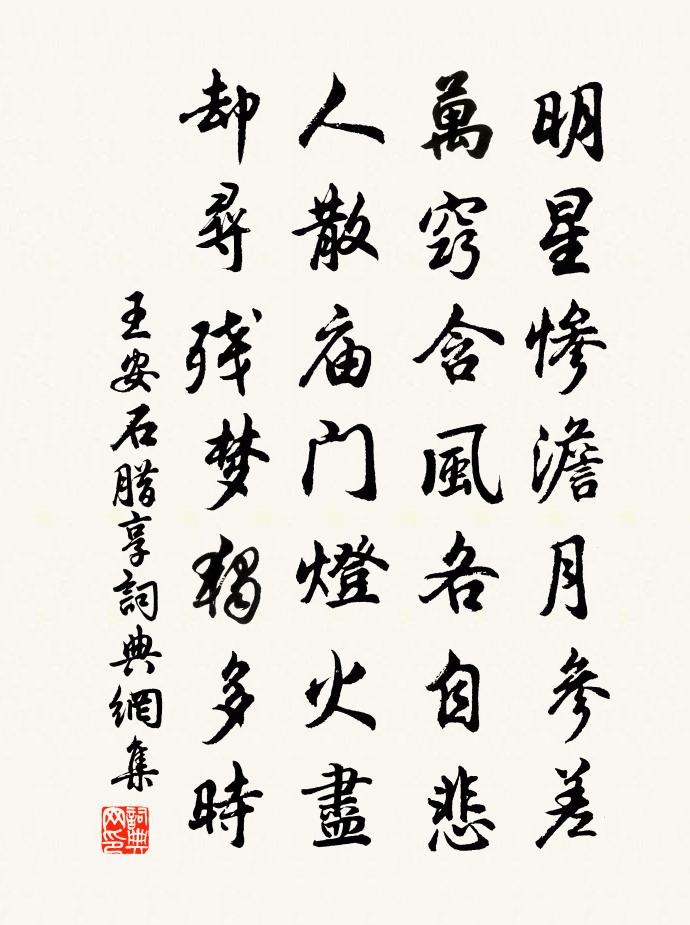 明星惨澹月參差
萬窍含風各自悲
人散庙门燈火盡
却尋残梦獨多時
王安石腊享詞典網集
詞典网印